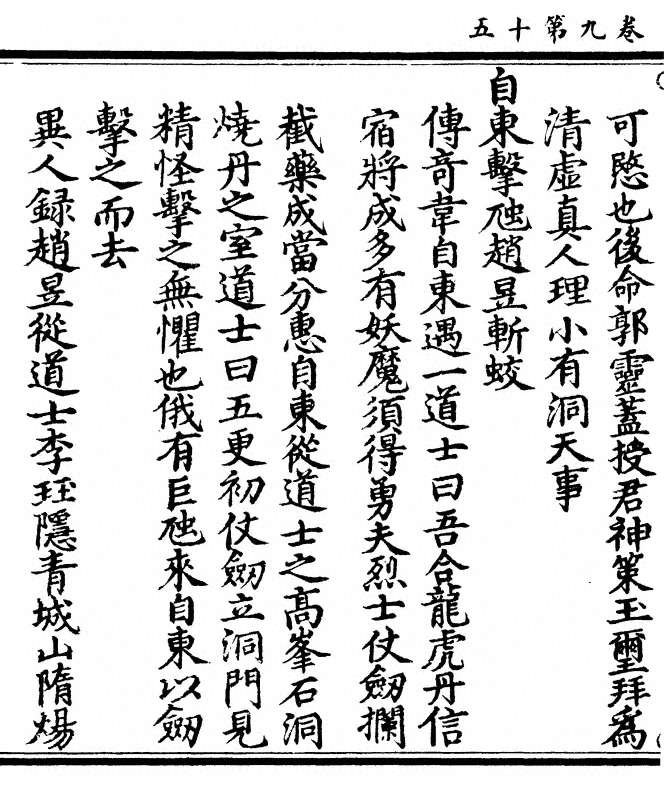 卷九第十五
可愍也後命郭靈蓋授君神策玉璽拜爲
清虛真人理小有洞天事
自東擊虵趙昱斬蛟
傳竒韋自東遇一道士曰吾合龍虎丹信
宿將成多有妖魔須得勇夫烈士仗劔攔
截藥成當分惠自東從道士之高峯石洞
燒丹之室道士曰五更初仗劔立洞門見
精怪擊之無懼也俄有巨虵來自東以劔
擊之而去
異人録趙昱從道士李珏隱青城山隋煬